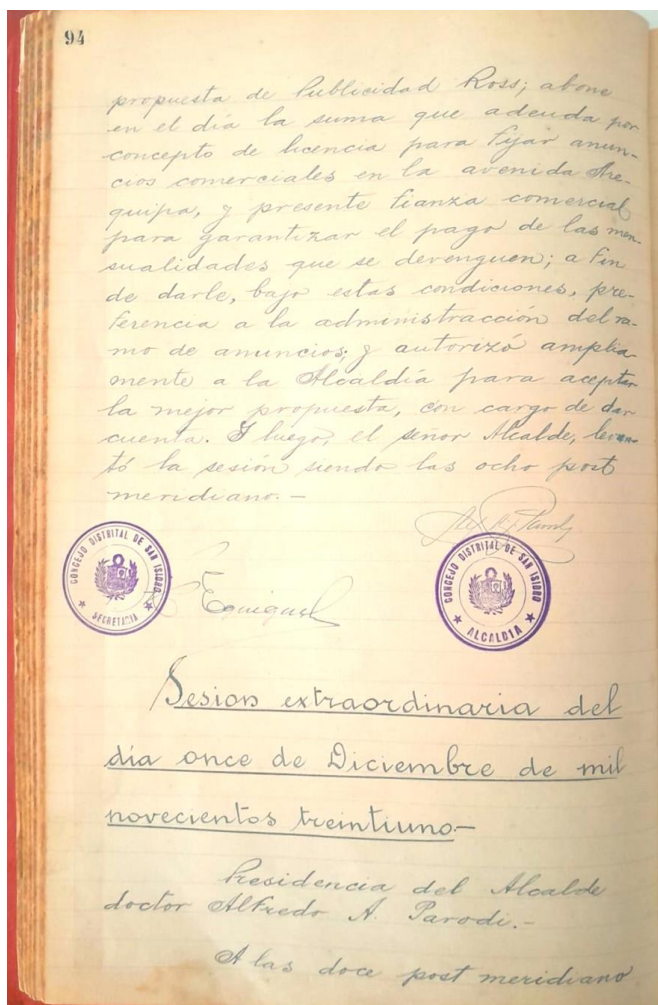 94
propuesta de Publicidad Ross; abone
en el día la suma que adeuda por
concepto de licencia para fijar anun-
cios comerciales en la avenida Are-
quipa, y presente fianza comercial
para garantizar el pago de las men-
sualidades que se devenguen; a fin
de darle, bajo estas condiciones, pre-
ferencia a la administracción del ra-
mo de anuncios; y autorizó amplia-
mente a la Alcaldía para aceptar
la mejor propuesta, con cargo de dar
cuenta. Y luego, el señor Alcalde, levan-
tó la sesión siendo las ocho post
meridiano.-
CONCEJO DISTRITAL DE SAN ISIDRO
SECRETARIA
CONCEJO DISTRITAL DE SAN ISIDRO
ALCALDIA
Sesion extraordinaria del
día once de Diciembre de mil
novecientos treintiuno.-
Presidencia del Alcalde
doctor Alfredo A. Parodi.-
A las doce post meridiano